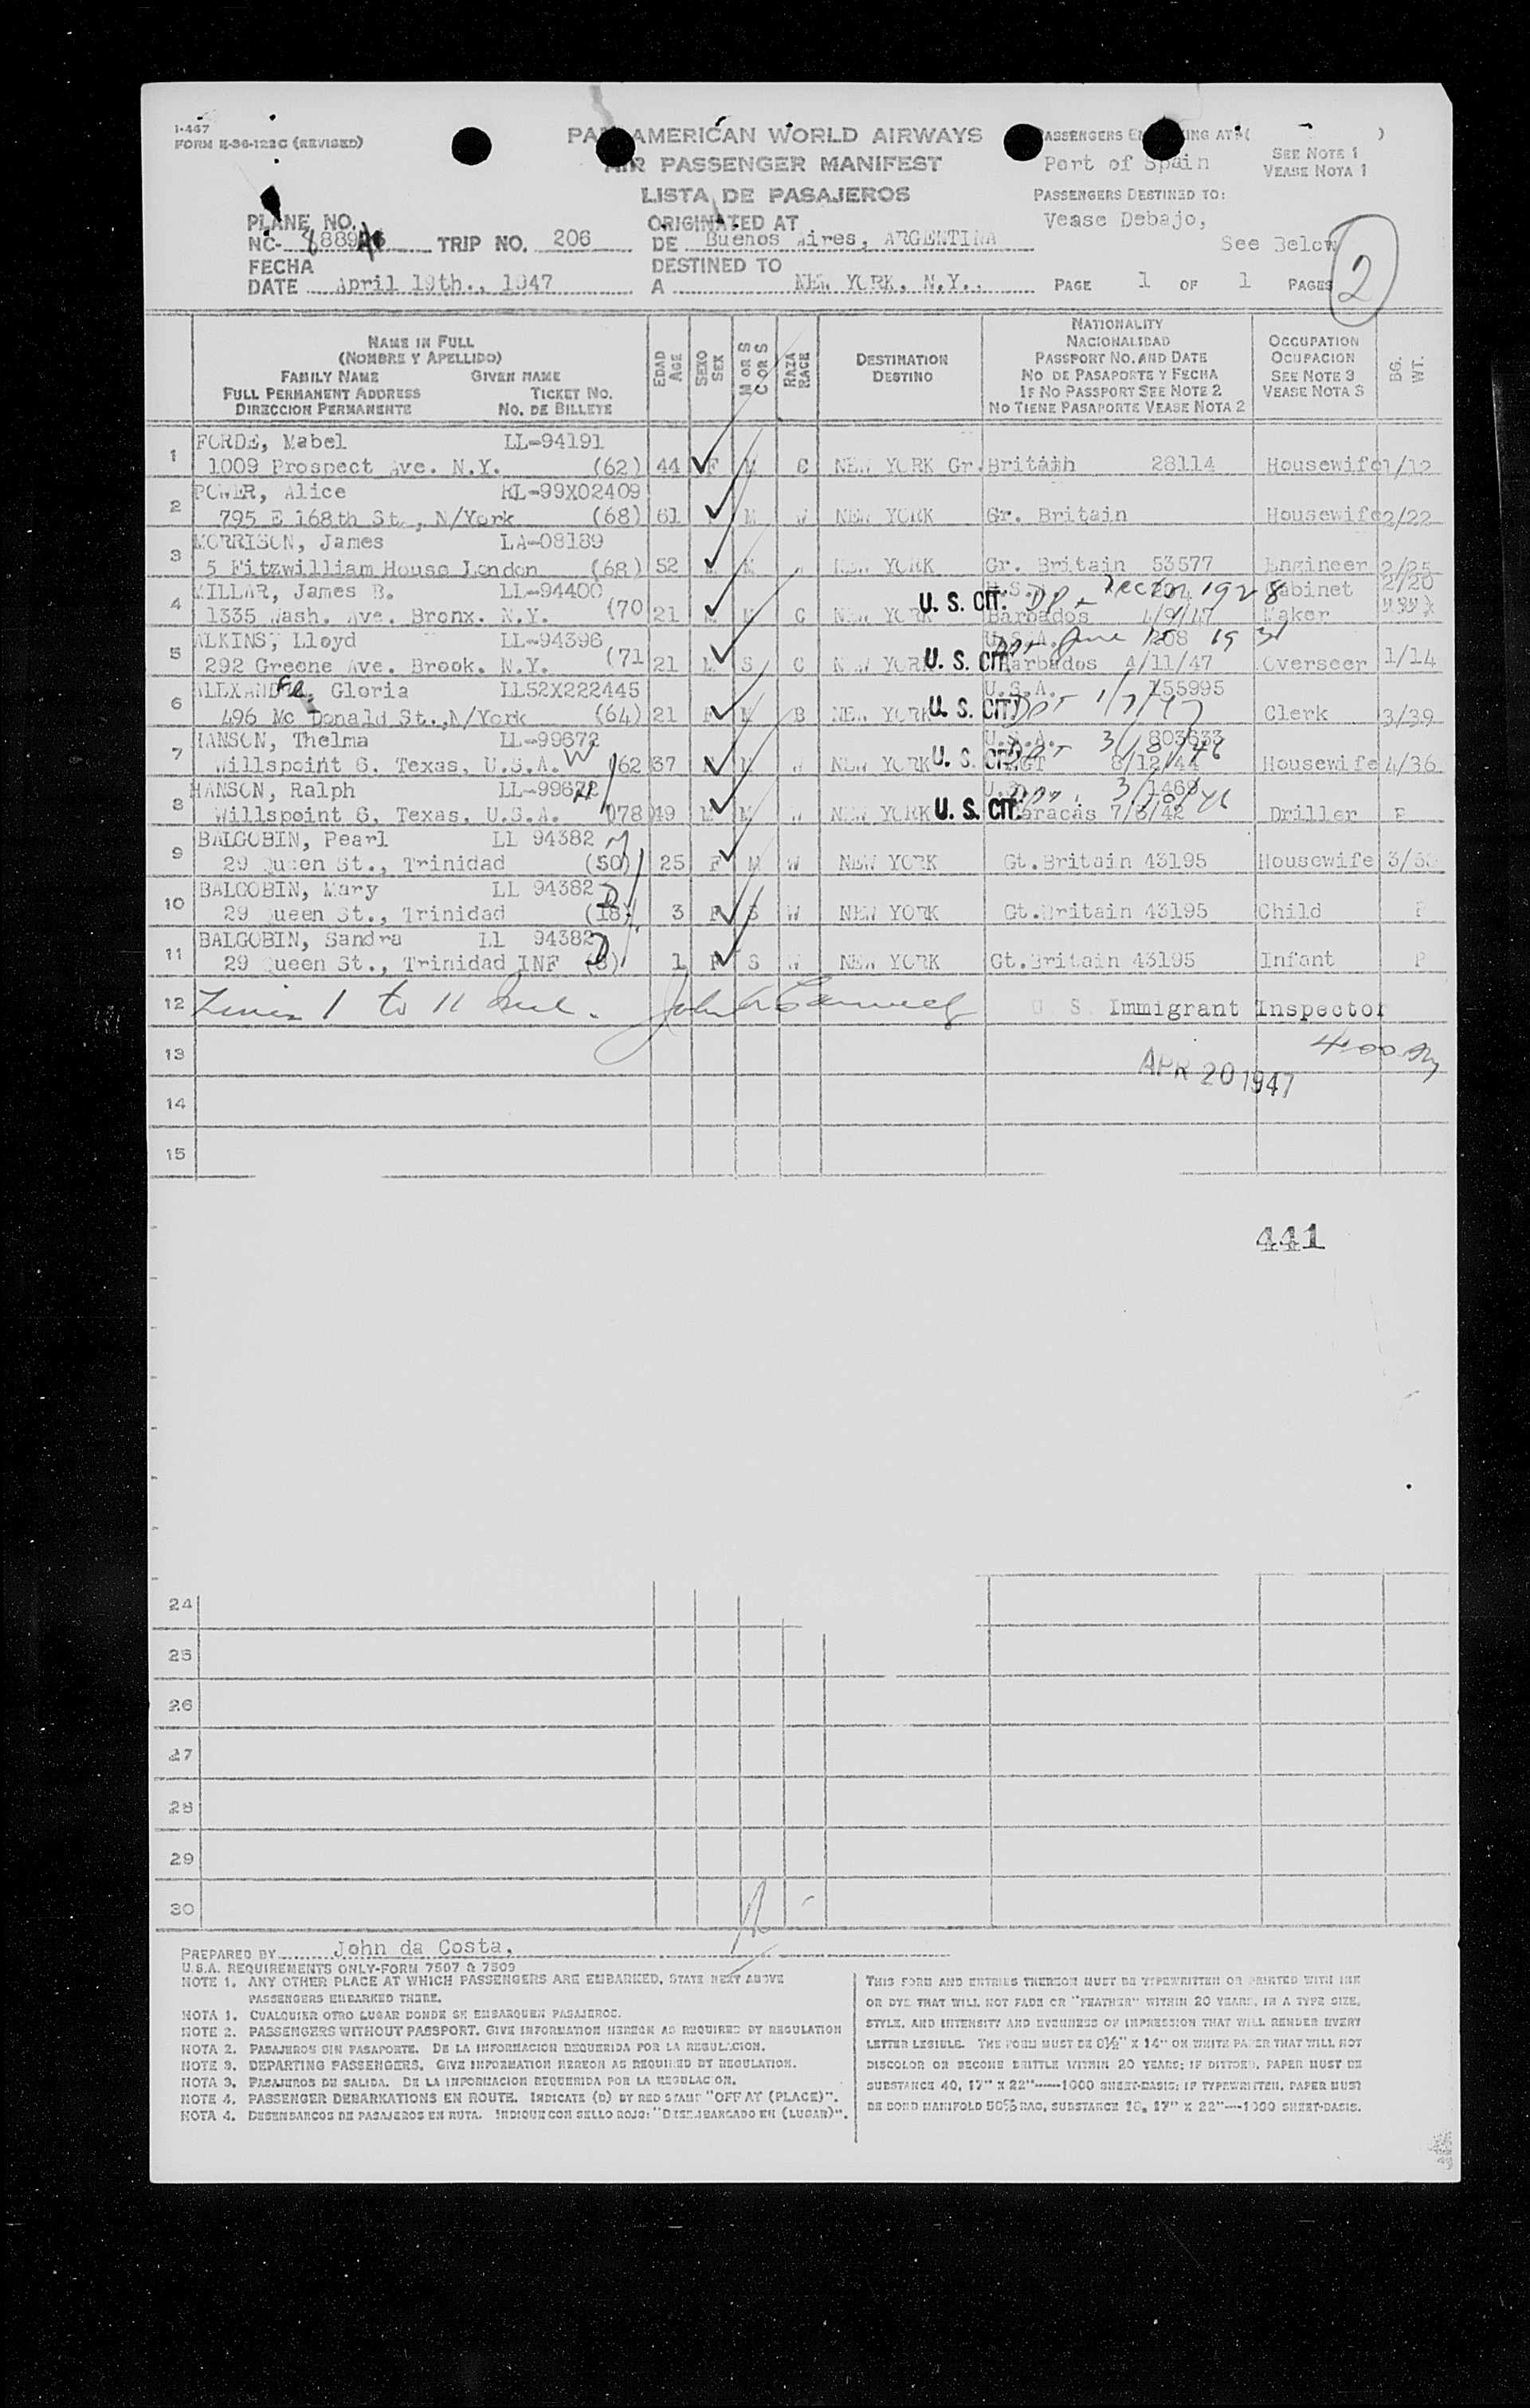 I-467
FORM E-36-122C (REVISED)
PAN AMERICAN WORLD AIRWAYS
AIR PASSENGER MANIFEST
LISTA DE PASAJEROS
PASSENGERS EMBARKING AT: ( )
Port of Spain
SEE NOTE 1
VEASE NOTA 1
PASSENGERS DESTINED TO:
Vease Debajo,
See Below
2
PLANE NO.
NC- TRIP NO. 206
ORIGINATED AT
DE Buenos Aires, ARGENTINA
FECHA
DATE April 19th., 1947
DESTINED TO
A NEW YORK, N.Y.
PAGE 1 OF 1 PAGES
NAME IN FULL
(NOMBRE Y APELLIDO)
FAMILY NAME GIVEN NAME
FULL PERMANENT ADDRESS TICKET NO.
DIRECCION PERMANENTE NO. DE BILLETE
EDAD AGE
SEXO SEX
M OR S
C OR S
RAZA RACE
DESTINATION
DESTINO
NATIONALITY
NACIONALIDAD
PASSPORT NO. AND DATE
NO DE PASAPORTE Y FECHA
IF NO PASSPORT SEE NOTE 2
NO TIENE PASAPORTE VEASE NOTA 2
OCCUPATION
OCUPACION
SEE NOTE 3
VEASE NOTA 3
BG. WT.
1 FORDE, Mabel LL-94191
1009 Prospect Ave. N.Y. (62) 44 F M C NEW YORK Gr. Britain 28114 Housewife 1/12
2 POWER, Alice RL-99X02409
795 E 168th St., N/York (68) 61 M W NEW YORK Gr. Britain Housewife 2/22
3 MORRISON, James LA-08189
5 Fitzwilliam House London (68) 52 M NEW YORK Gr. Britain 53577 Engineer 2/25
4 MILLAR, James B. LL-94400 U.S. Cabinet 2/20
1335 Wash. Ave. Bronx. N.Y. (70 21 M C NEW YORK U. S. CIT. Barbados Maker
5 ALKINS, Lloyd LL-94396 U.S.A. 1208
292 Greene Ave. Brook. N.Y. (71 21 M S C NEW YORK U. S. CIT. Barbados 4/11/47 Overseer 1/14
6 Gloria LL52X222445 U.S.A. 155995
496 Mc Donald St., N/York (64) 21 F M B NEW YORK U. S. CIT. 1/7/47 Clerk 3/39
7 HANSON, Thelma LL-99672 U.S.A. 803633
Willspoint 6, Texas, U.S.A. (62 37 M W NEW YORK U. S. CIT. 8/12/44 Housewife 4/36
8 HANSON, Ralph LL-99672 1469
Willspoint 6, Texas, U.S.A. (78 49 M M W NEW YORK U. S. CIT. Caracas 7/6/42 Driller P
9 BALGOBIN, Pearl LL 94382
29 Queen St., Trinidad (50) 25 F M W NEW YORK Gt.Britain 43195 Housewife
10 BALGOBIN, Mary LL 94382
29 Queen St., Trinidad (18) 3 F S W NEW YORK Gt.Britain 43195 Child P
11 BALGOBIN, Sandra LL 94382
29 Queen St., Trinidad INF (8) 1 F S W NEW YORK Gt.Britain 43195 Infant P
12 Lines 1 to 11 incl. John U. S. Immigrant Inspector
13 4:00
APR 20 1947
14
15
441
24
25
26
27
28
29
30
PREPARED BY John da Costa.
U.S.A. REQUIREMENTS ONLY-FORM 7507 & 7509
NOTE 1. ANY OTHER PLACE AT WHICH PASSENGERS ARE EMBARKED, STATE NEXT ABOVE
PASSENGERS EMBARKED THERE.
NOTA 1. CUALQUIER OTRO LUGAR DONDE SE EMBARQUEN PASAJEROS.
NOTE 2. PASSENGERS WITHOUT PASSPORT. GIVE INFORMATION HEREON AS REQUIRED BY REGULATION
NOTA 2. PASAJEROS SIN PASAPORTE. DE LA INFORMACION REQUERIDA POR LA REGULACION.
NOTE 3. DEPARTING PASSENGERS. GIVE INFORMATION HEREON AS REQUIRED BY REGULATION.
NOTA 3. PASAJEROS DE SALIDA. DE LA INFORMACION REQUERIDA POR LA REGULACION.
NOTE 4. PASSENGER DEBARKATIONS EN ROUTE. INDICATE (D) BY RED STAMP "OFF AT (PLACE)".
NOTA 4. DESEMBARCOS DE PASAJEROS EN RUTA. INDIQUE CON SELLO ROJO: "DESEMBARCADO EN (LUGAR)".
THIS FORM AND ENTRIES THEREON MUST BE TYPEWRITTEN OR PRINTED WITH INK
OR DYE THAT WILL NOT FADE OR "FEATHER" WITHIN 20 YEARS, IN A TYPE SIZE,
STYLE, AND INTENSITY AND EVENNESS OF IMPRESSION THAT WILL RENDER EVERY
LETTER LEGIBLE. THE FORM MUST BE 8½" X 14" ON WHITE PAPER THAT WILL NOT
DISCOLOR OR BECOME BRITTLE WITHIN 20 YEARS; IF DITTOED, PAPER MUST BE
SUBSTANCE 40, 17" X 22"-----1000 SHEET-BASIS; IF TYPEWRITTEN, PAPER MUST
BE BOND MANIFOLD 50% RAG, SUBSTANCE 16, 17" X 22"---1000 SHEET-BASIS.